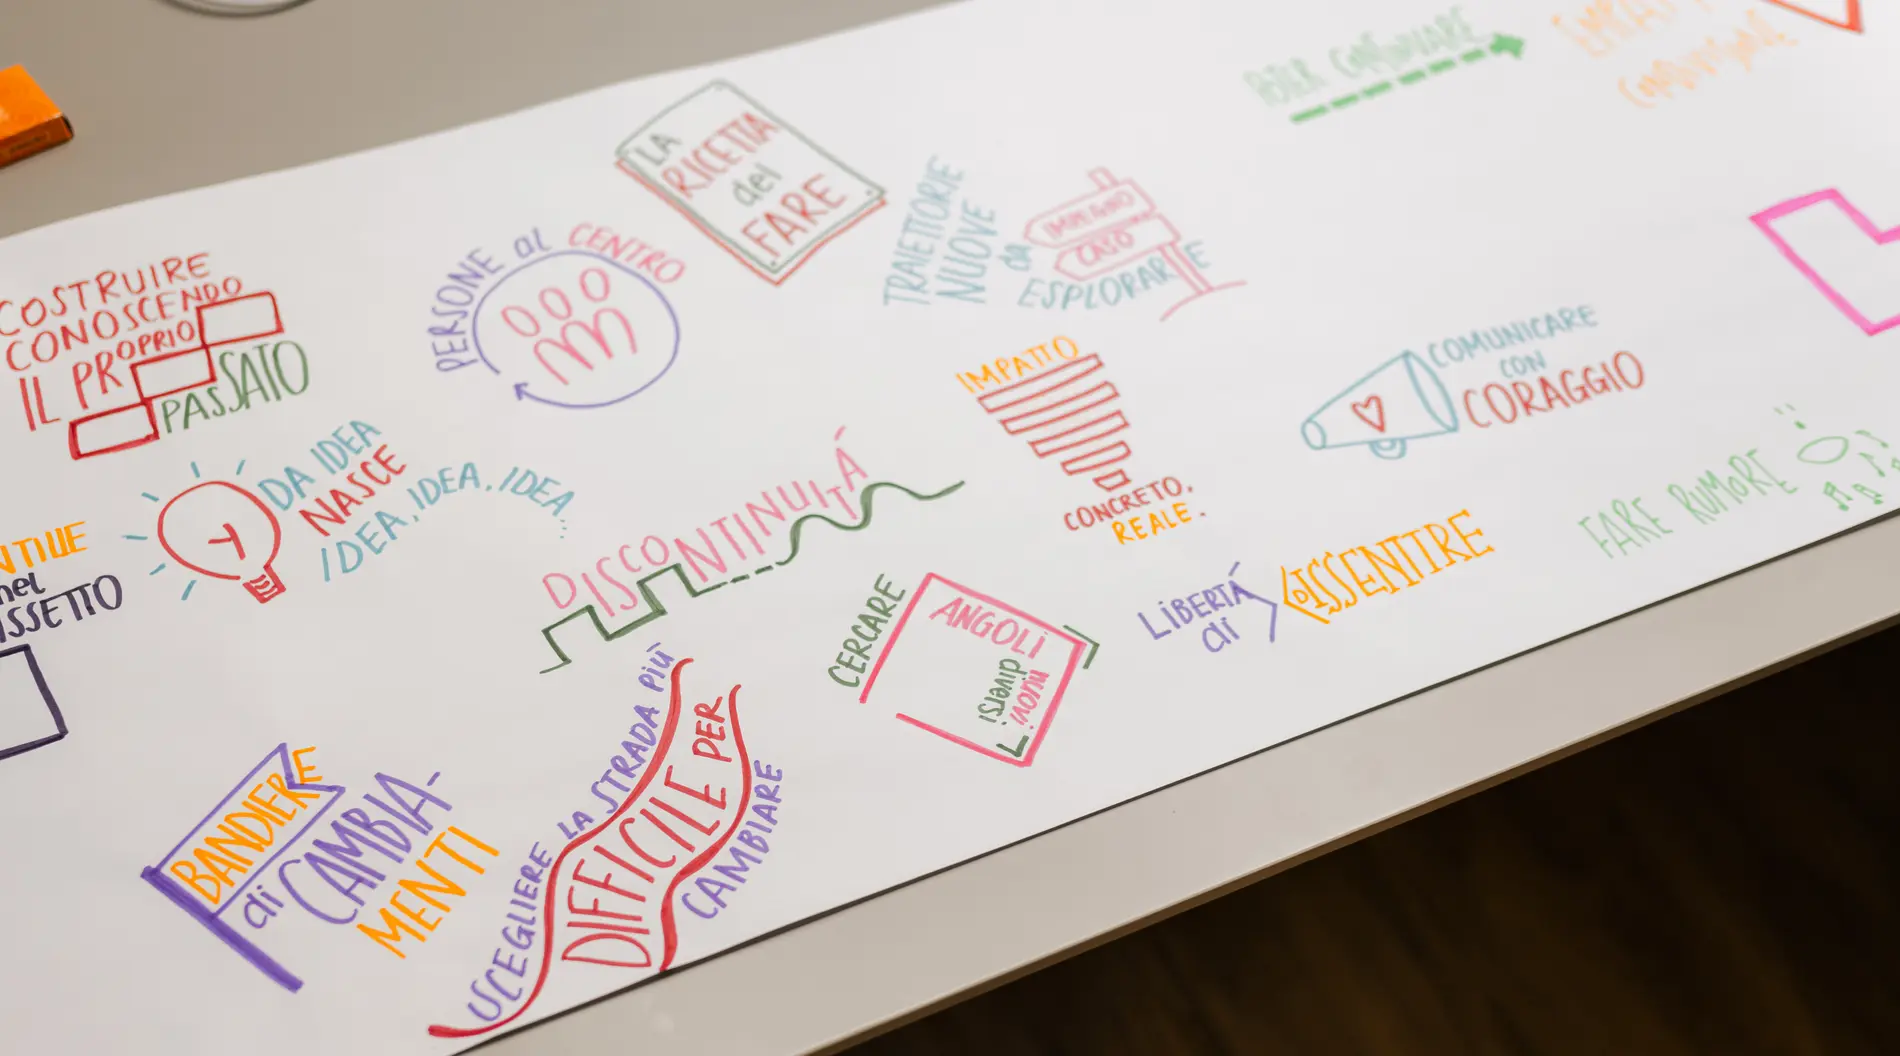 COSTRUIRE
CONOSCENDO
IL PROPRIO
PASSATO
PERSONE AL CENTRO
LA
RICETTA
del
FARE
TRAIETTORIE
NUOVE
da
ESPLORARE
IMPEGNO
CASO
POTER CONDIVIDERE
DA IDEA
NASCE
IDEA, IDEA, IDEA...
nel
DISCONTINUITÁ
IMPATTO
CONCRETO.
REALE.
COMUNICARE
CON
CORAGGIO
FARE RUMORE
LIBERTÁ
di
DISSENTIRE
CERCARE
ANGOLI
nuovi
diversi
BANDIERE
di CAMBIA-
MENTI
SCEGLIERE LA STRADA PIÙ
DIFFICILE PER
CAMBIARE